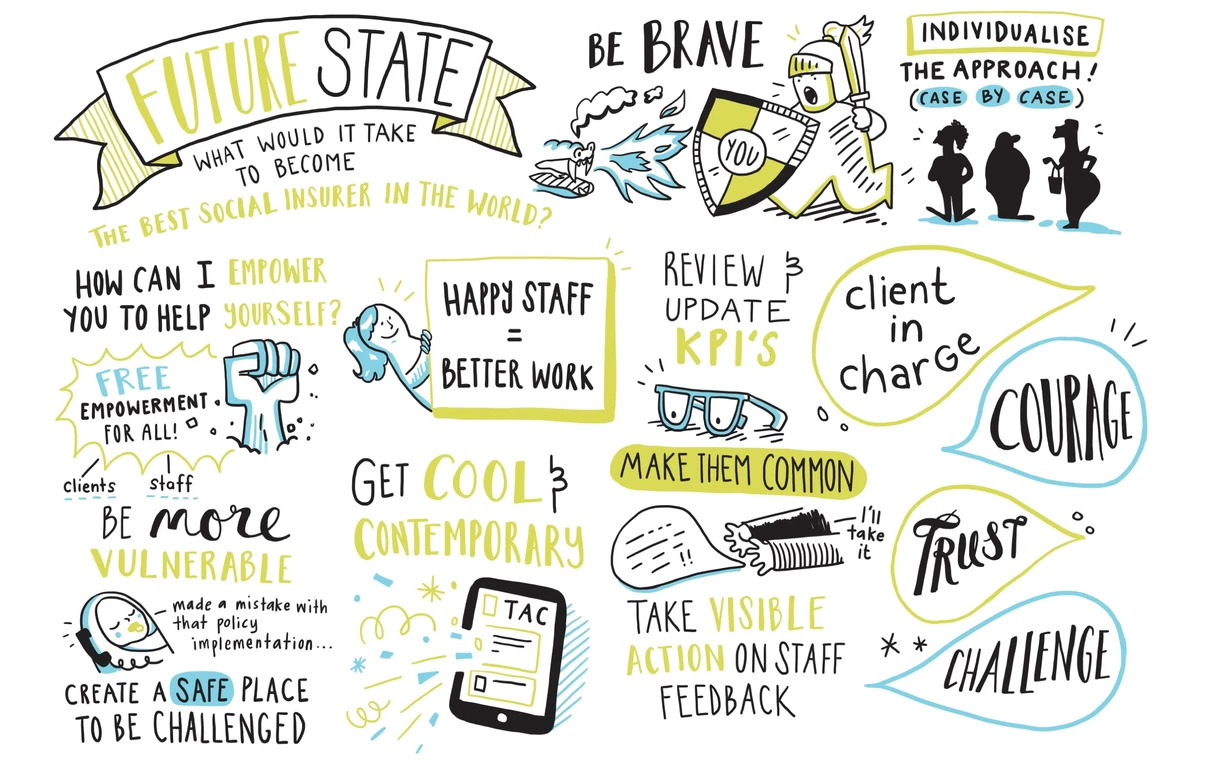 FUTURE STATE
WHAT WOULD IT TAKE
TO BECOME
THE BEST SOCIAL INSURER IN THE WORLD?
BE BRAVE
YOU
INDIVIDUALISE
THE APPROACH!
(CASE BY CASE)
HOW CAN I EMPOWER
YOU TO HELP YOURSELF?
FREE
EMPOWERMENT
FOR ALL!
clients staff
HAPPY STAFF
=
BETTER WORK
REVIEW &
UPDATE
KPI'S
MAKE THEM COMMON
client
in
charge
COURAGE
BE more
VULNERABLE
made a mistake with
that policy
implementation...
CREATE A SAFE PLACE
TO BE CHALLENGED
GET COOL &
CONTEMPORARY
TAC
I'll
take
it
TAKE VISIBLE
ACTION ON STAFF
FEEDBACK
TRUST
CHALLENGE